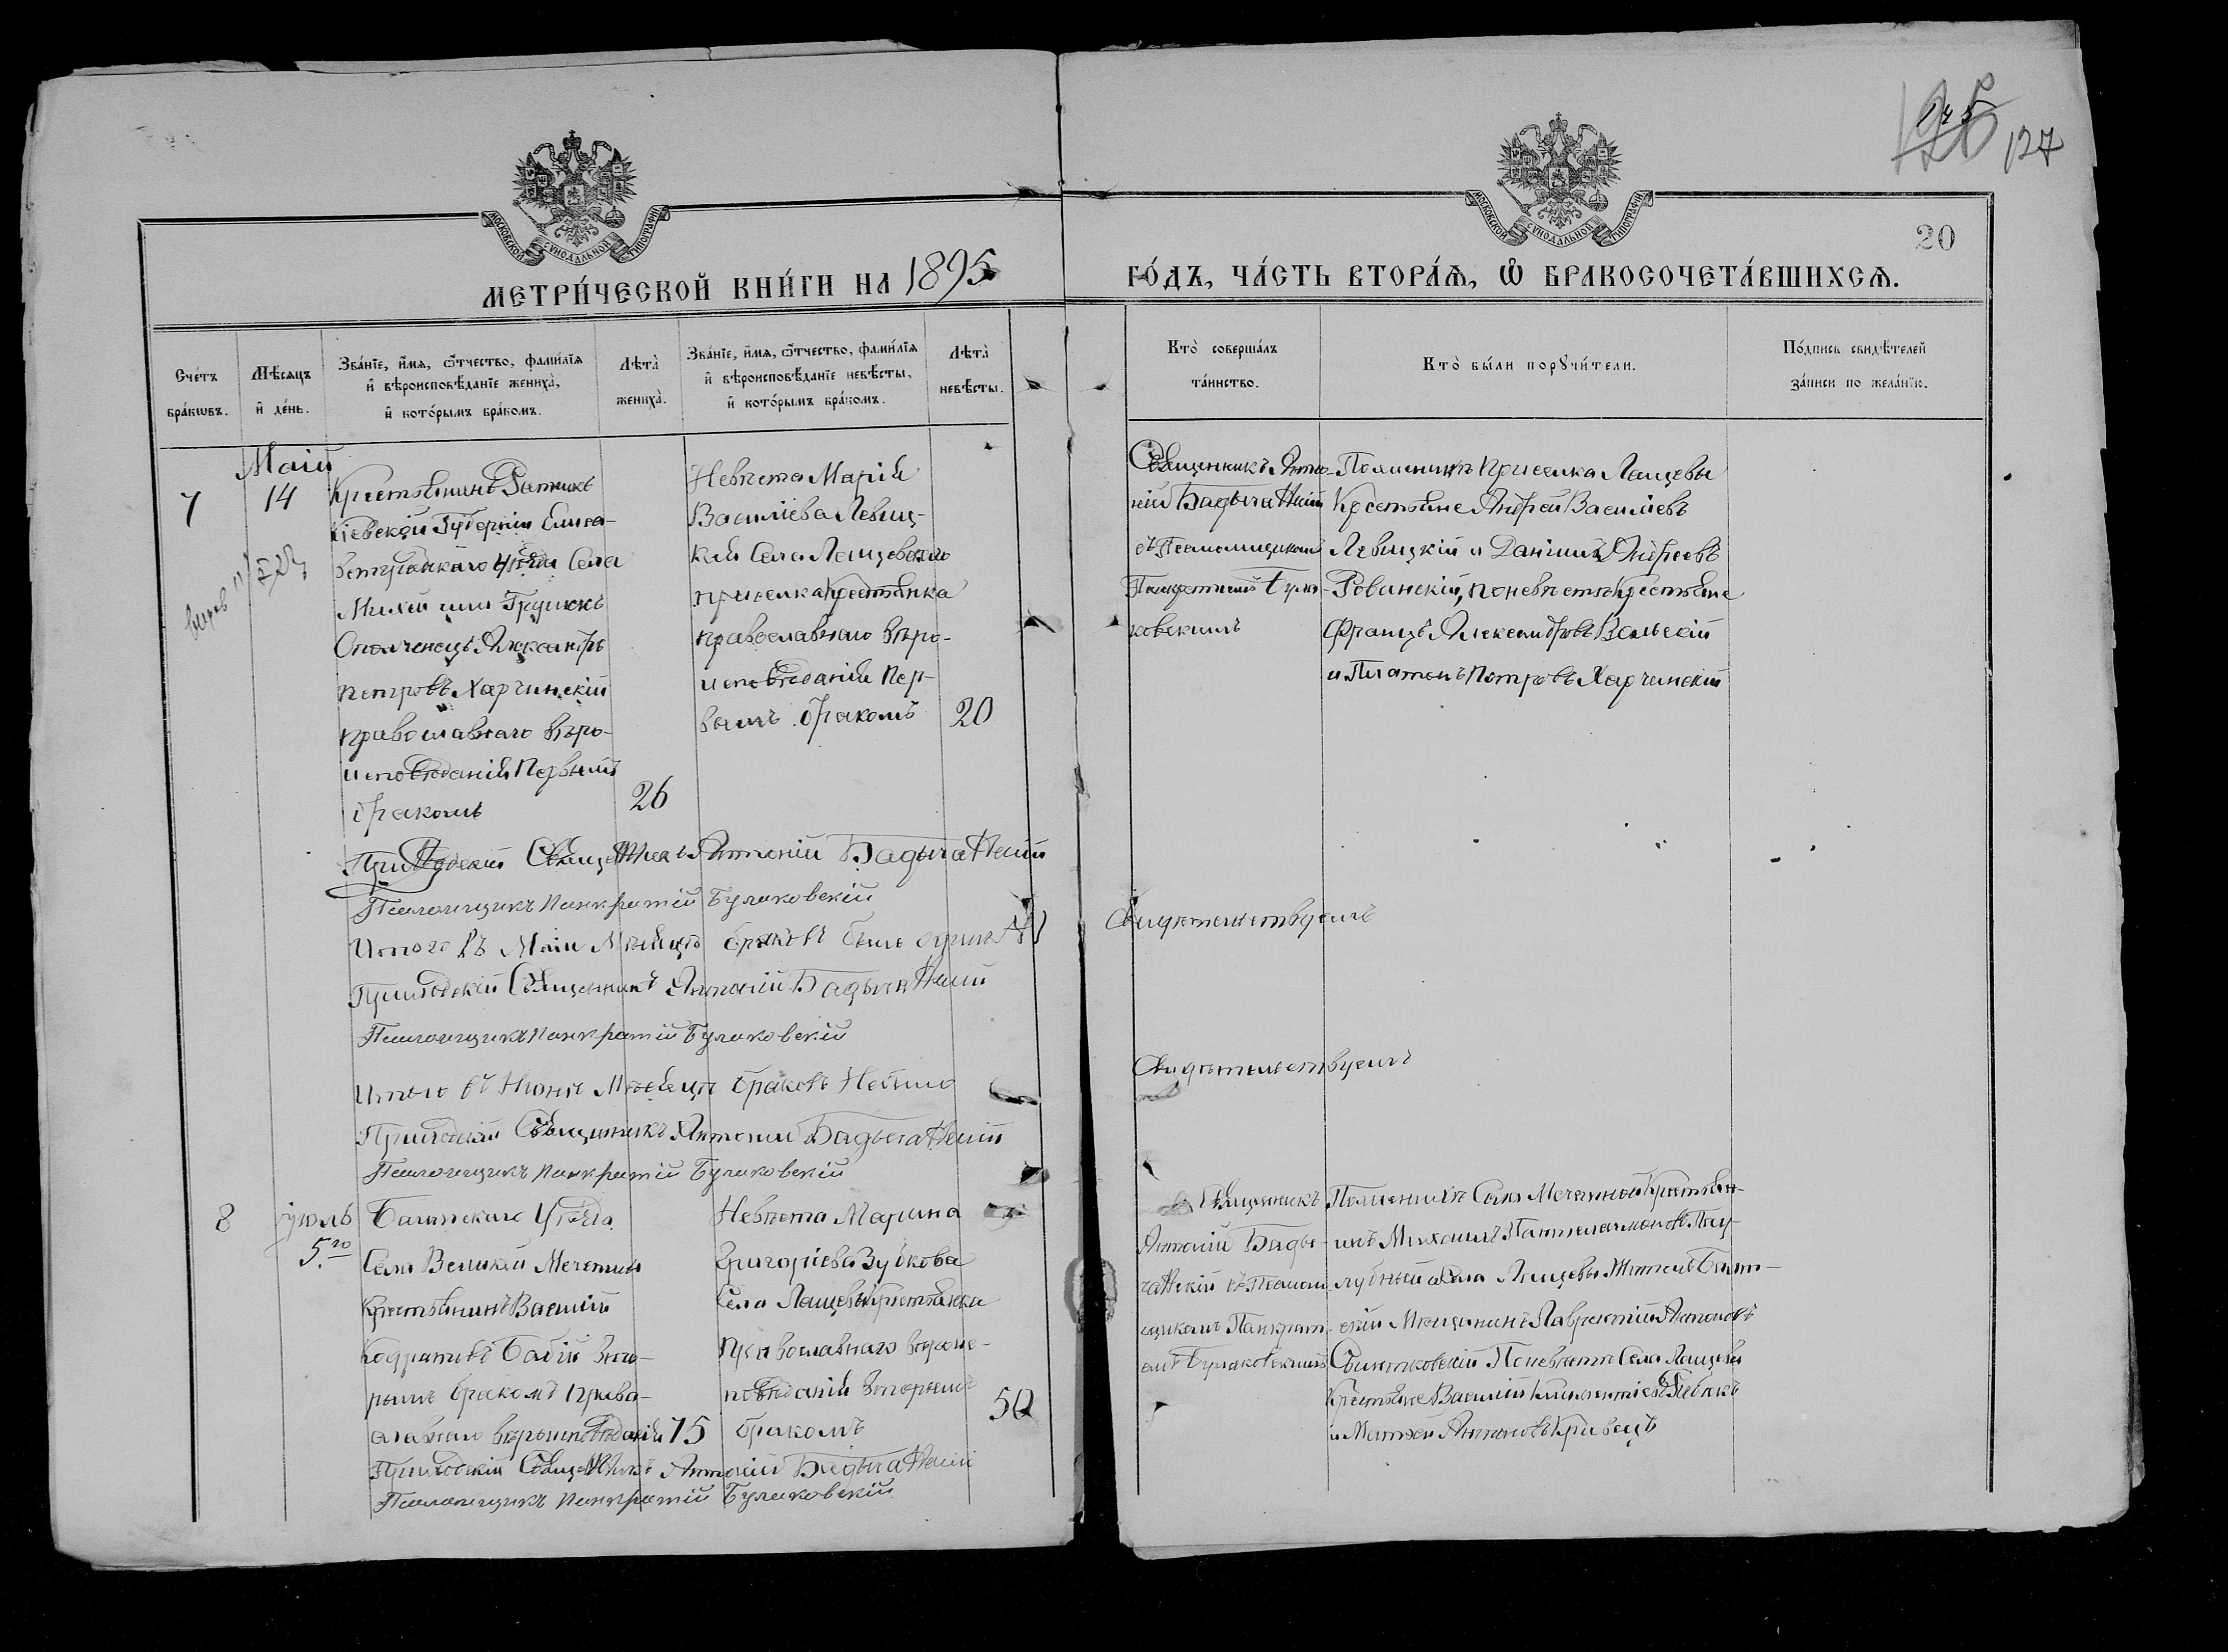 127
20
МОСКОВСКОЙ СѴНОДАЛЬНОЙ ТИПОГРАФІИ
МОСКОВСКОЙ СѴНОДАЛЬНОЙ ТИПОГРАФІИ
МЕТРИ́ЧЕСКОЙ КНИ́ГИ НА 1895
ГО́ДЪ, ЧА́СТЬ ВТОРА́Ѧ, Ѡ БРАКОСОЧЕТА́ВШИХСѦ.
Сче́тъ бра́кѡвъ.
Мѣ́сѧцъ и҆ де́нь.
Зва́нїе, и҆́мѧ, ѻ҆́тчество, фами́лїѧ и҆ вѣроисповѣ́данїе жениха̀, и҆ кото́рымъ бра́комъ.
Лѣта̀ жениха̀.
Зва́нїе, и҆́мѧ, ѻ҆́тчество, фами́лїѧ и҆ вѣроисповѣ́данїе невѣ́сты, и҆ кото́рымъ бра́комъ.
Лѣта̀ невѣ́сты.
Кто̀ соверша́лъ та́инство.
Кто̀ бы́ли порꙋчи́тели.
По́дпись свидѣ́телей за́писи по жела́нїю.
Маій
7
14
Крестьянинъ Ратникъ
Кіевской Губерніи
уѣзда Села
Ополченецъ Александръ
Петровъ Харчинскій
православнаго вѣро-
исповѣданія Первымъ
бракомъ
26
Невѣста Марія
Василіева Левиц-
кая Села Лащевскаго
приселка крестьянка
православнаго вѣро-
исповѣданія Пер-
вымъ бракомъ
20
Священникъ Анто-
ній
съ Псаломщикомъ
Панкратіемъ Була-
ковскимъ
По женихѣ Приселка Лащевы
Крестьяне Андрей Василіевъ
Левицкій и Даніилъ Андреевъ
Рованскій, по невѣстѣ крестьяне
Францъ Александровъ Вольскій
и Платонъ Петровъ Харчинскій
Приходскій Священникъ Антоній
Псаломщикъ Панкратій Булаковскій
Итого въ Маіи Мѣсяцѣ браковъ было одинъ
Свидѣтельствуемъ
Приходскій Священникъ Антоній
Псаломщикъ Панкратій Булаковскій
Итого въ Июнѣ Мѣсяцѣ браковъ Небыло
Свидѣтельствуемъ
Приходскій Священникъ Антоній
Псаломщикъ Панкратій Булаковскій
8
Іюль
5.го
Балтскаго Уѣзда
Села Великой Мечетни
Крестьянинъ Василій
Кодратовъ Бабій вто-
рымъ бракомъ право-
славнаго вѣроисповѣданія
75
Невѣста Марина
Григоріева Зубкова
Села Лащевы крестьянка
Православнаго вѣроис-
повѣданія вторымъ
бракомъ
50
Священникъ
Антоній
съ Псалом-
щикомъ Панкраті-
емъ Булаковскимъ
По женихѣ Села Мечетной Крестьян-
инъ Михаилъ Пантелеимоновъ
Села Лащевы Житель Балт-
скій Мещанинъ Лаврентій Антоновъ
По невѣстѣ Села Лащевы
Крестьяне Василій Климентіевъ
и Матѳей Антоновъ Кравецъ
Приходскій Священникъ Антоній
Псаломщикъ Панкратій Булаковскій